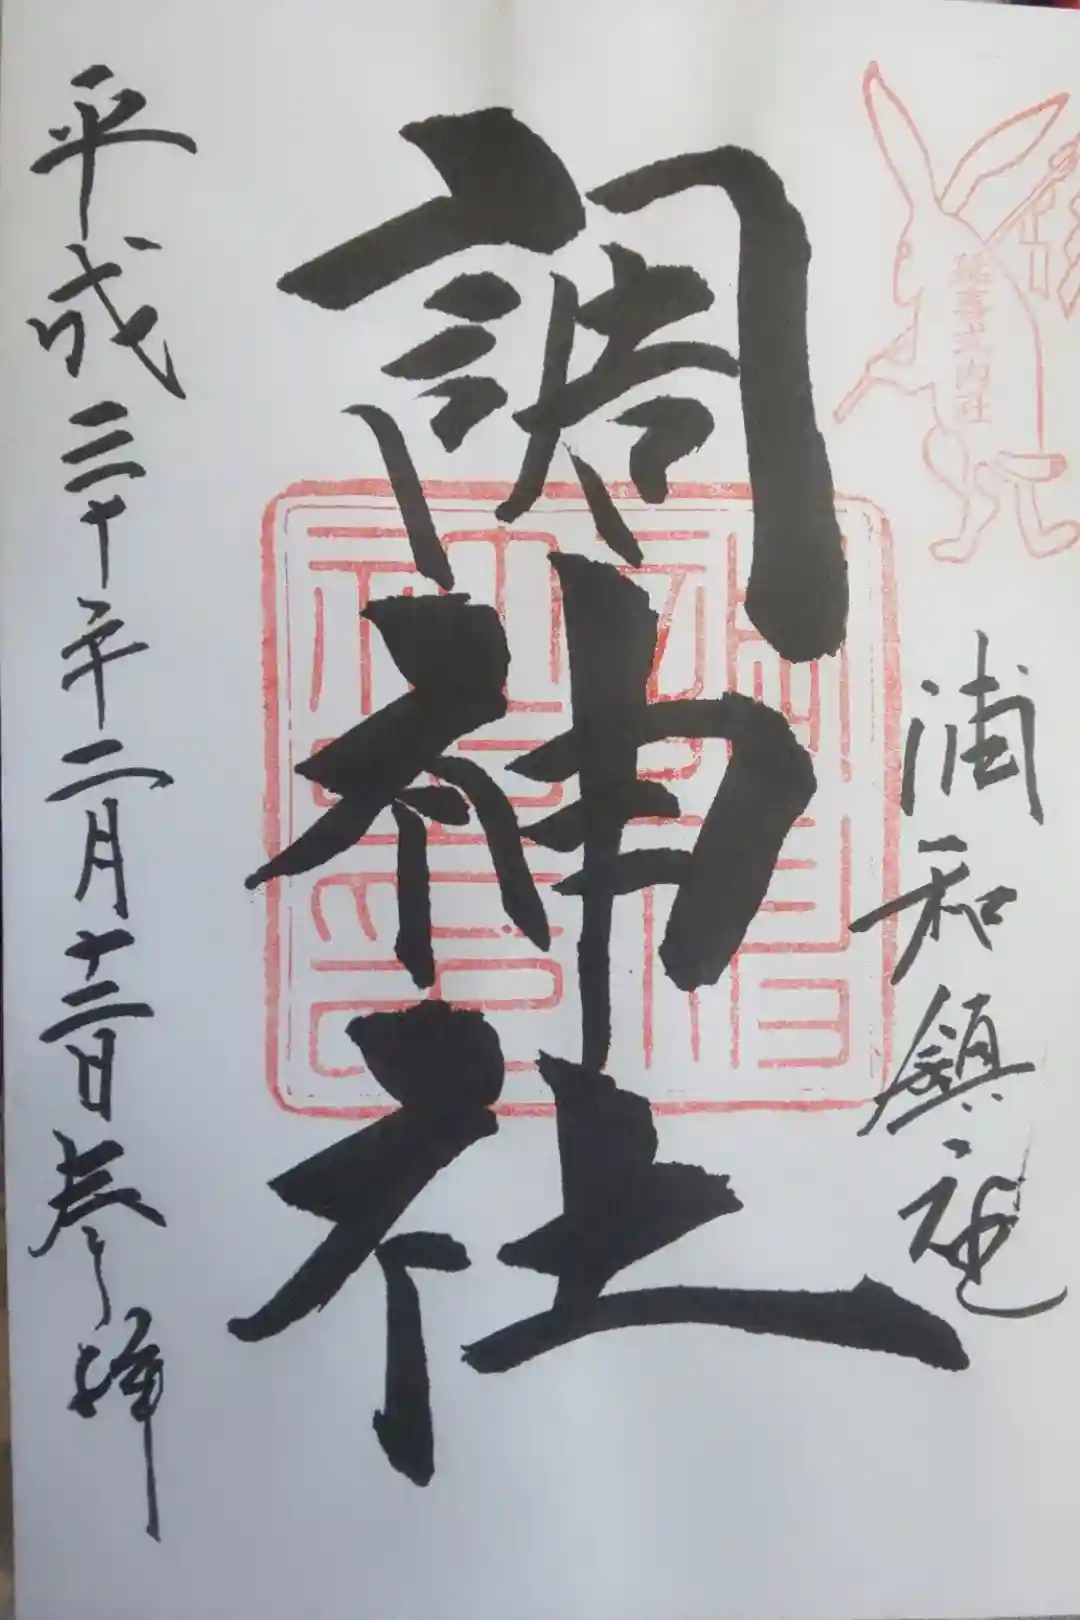 延喜式内社
浦和鎮座
調神社
平成三十年二月十二日参拝